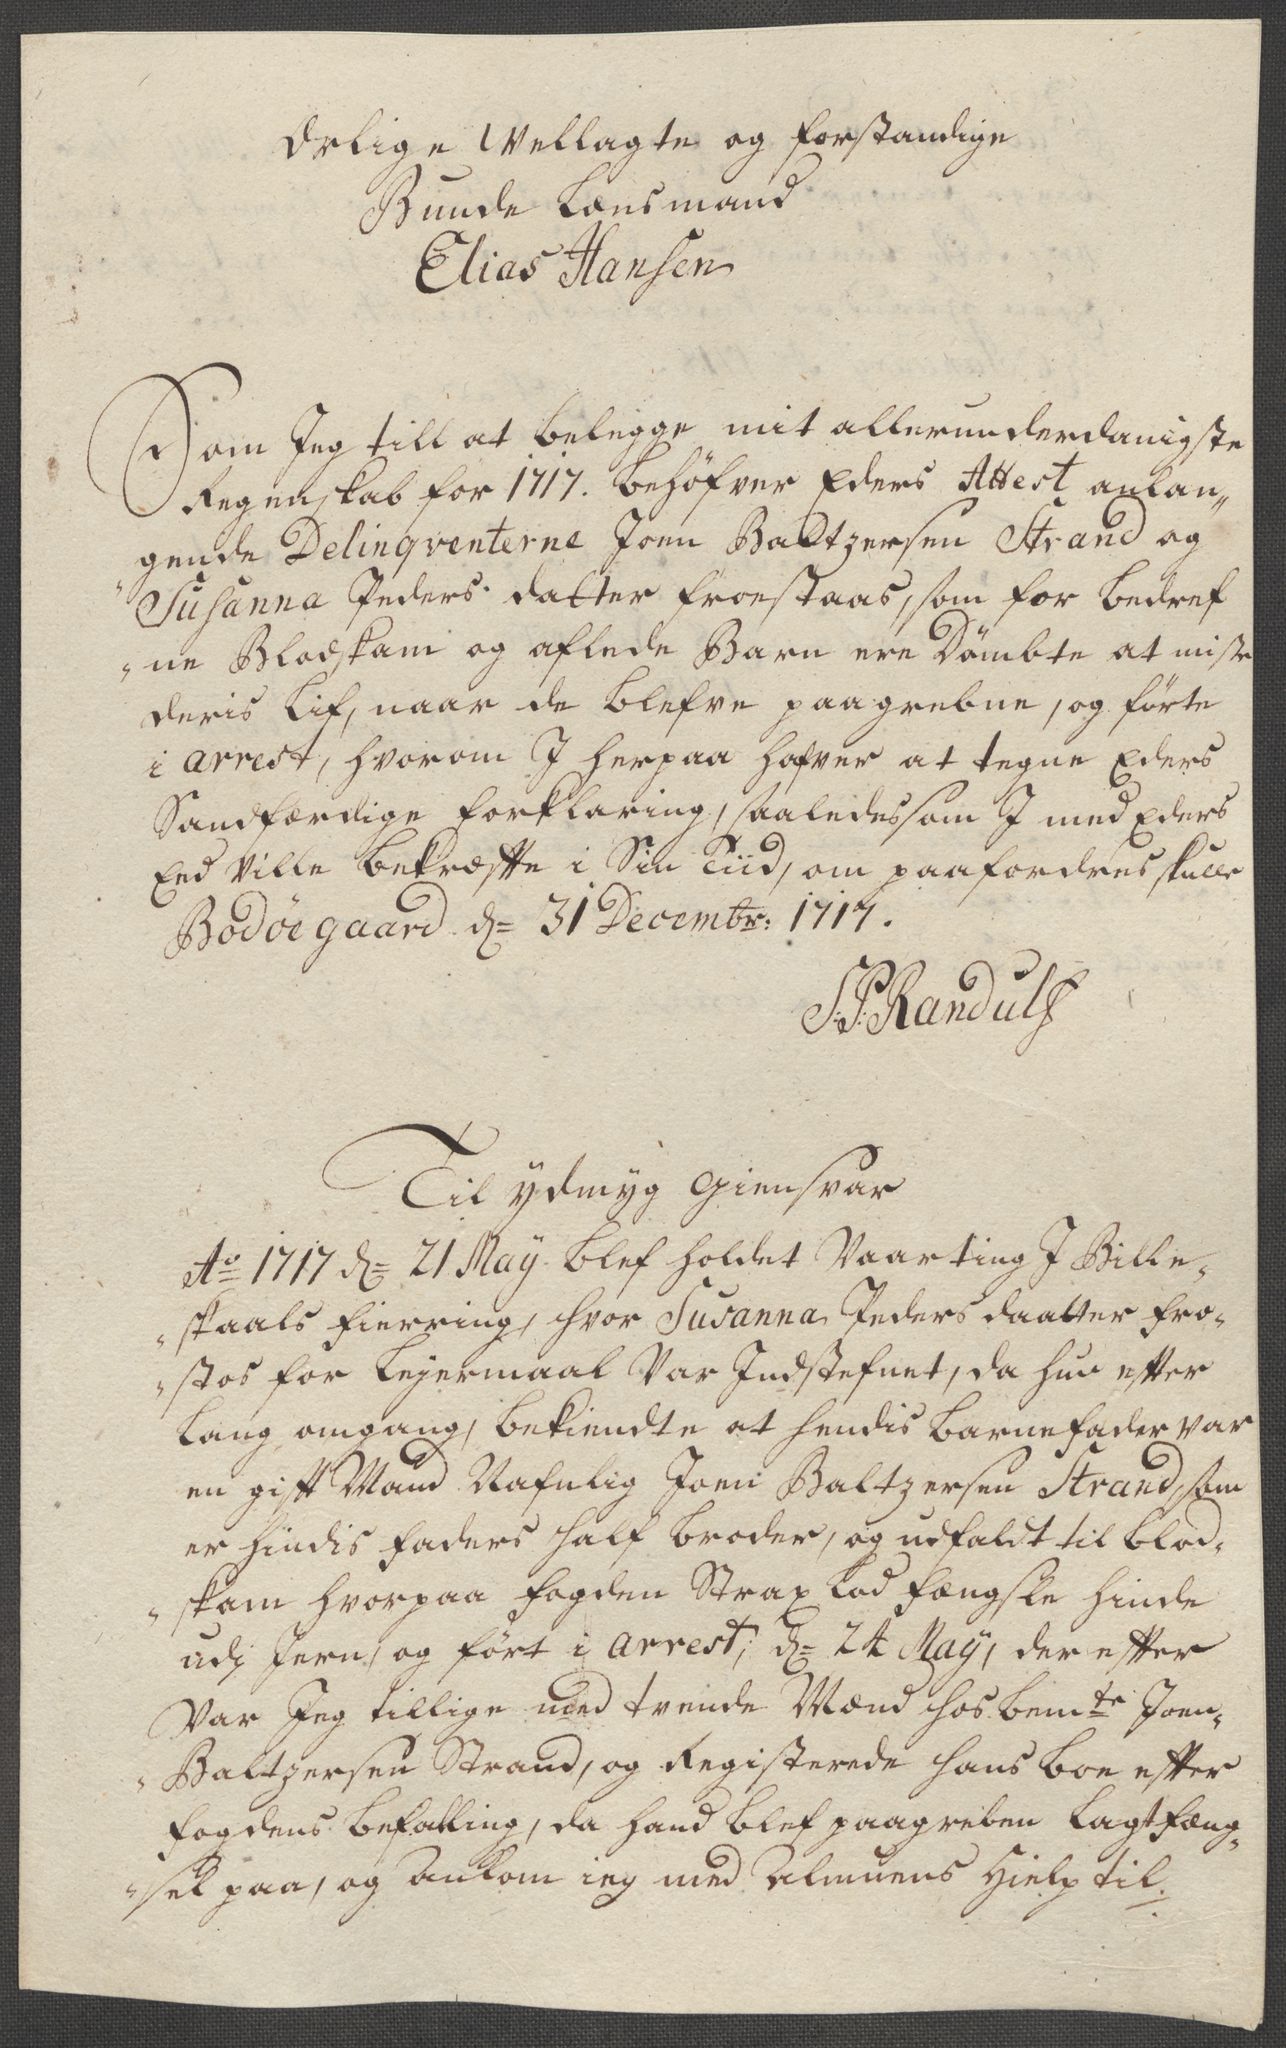 Ærlige Wellagte og forstandige
Bunde Lænsmand
Elias Hansen
Som Jeg till at belegge mit allerunderdanigste
Regenskab for 1717. behöfver Eders Attest anlan„
gende Delinqventerne Joen Baltzersen Strand og
Susanna Peders datter Froestaas, som for bedref
„ne Blodskam og aflede Barn ere Dömbte at miste
deris Lif, naar de blefve paagrebne, og förte
i arrest, hvorom I herpaa hafver at tegne Eders
Sandfærdige forklaring, saaledes som I med Eders
Eed ville bekræffte i Sin Tiid, om paafordres skulle
Bodöegaard d= 31 Decembr: 1717.
S:P:Randulf
Til ydmyg giensvar
Ao 1717 d= 21 May blef holdet Vaarting I Bille„
„skaals fierring, hvor Susanna Peders daatter Fro„
„stos for Lejermaal Var Indstefnet, da hun effter
lang omgang, bekiendte at hendis barnefader var
en gifft Mand Nafnlig Joen Baltzersen Strand, som
er hindis faders half broder, og udfaldt til blod„
„skam hvorpaa fogden Strax lod fængsle hinde
udj Jern, og fört i arrest; d= 24 May, der effter
Var Jeg tillige med tvende Mænd hos bemte Joen„
„Baltzersen Strand, og Registerede hans boe effter
fogdens befalling, da hand blef paagreben lagt fæng„
„sel paa, og ankom ieg med Almuens Hielp til